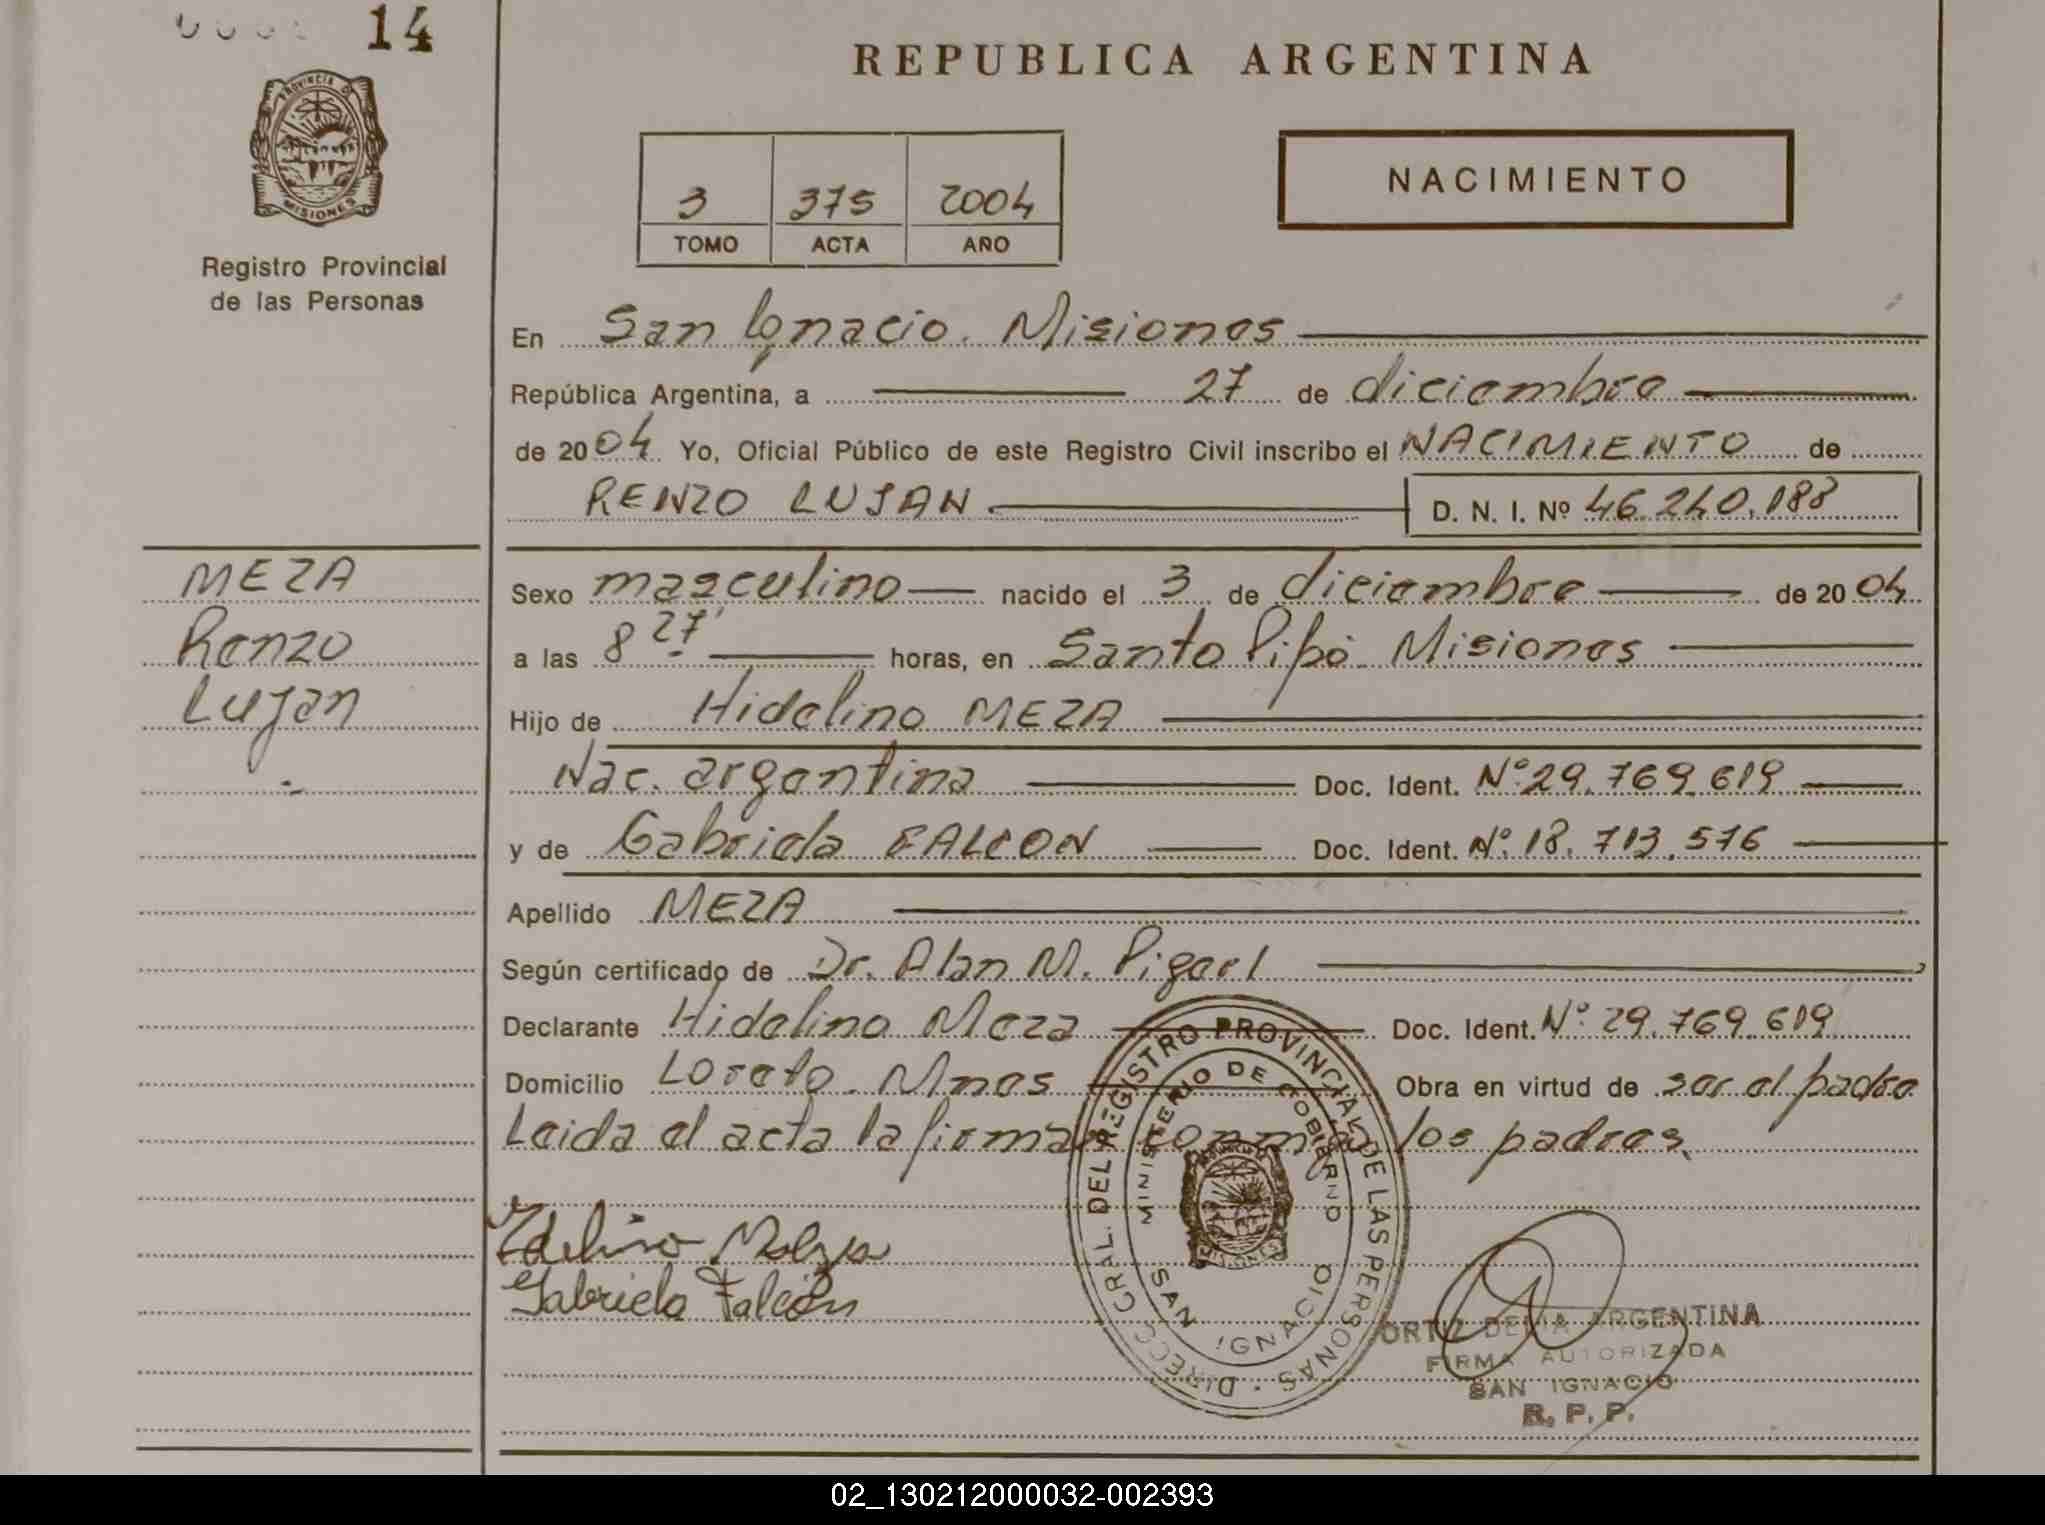 14
PROVINCIA DE
MISIONES
Registro Provincial
de las Personas
REPUBLICA ARGENTINA
3 375 2004
TOMO ACTA AÑO
NACIMIENTO
En San Ignacio. Misiones
República Argentina, a 27 de diciembre
de 2004 Yo, Oficial Público de este Registro Civil inscribo el NACIMIENTO de
RENZO LUJAN D. N. I. Nº 46.240.188
MEZA
Renzo
Lujan
Sexo masculino nacido el 3 de diciembre de 2004
a las 8 27' horas, en Santo Pipó Misiones
Hijo de Hidelino MEZA
Nac. argentina Doc. Ident. Nº 29.769.619
y de Gabriela FALCON Doc. Ident. Nº 18.713.576
Apellido MEZA
Según certificado de Dr. Alan M.
Declarante Hidelino Meza Doc. Ident. Nº 29.769.619
Domicilio Loreto. Mnes Obra en virtud de ser el padre
Leida el acta la firman conmigo los padres.
Gabriela Falcón
DIRECC. GRAL. DEL REGISTRO PROVINCIAL DE LAS PERSONAS
MINISTERIO DE GOBIERNO
MISIONES
SAN IGNACIO
ORTIZ DELIA ARGENTINA
FIRMA AUTORIZADA
SAN IGNACIO
R. P. P.
02_130212000032-002393